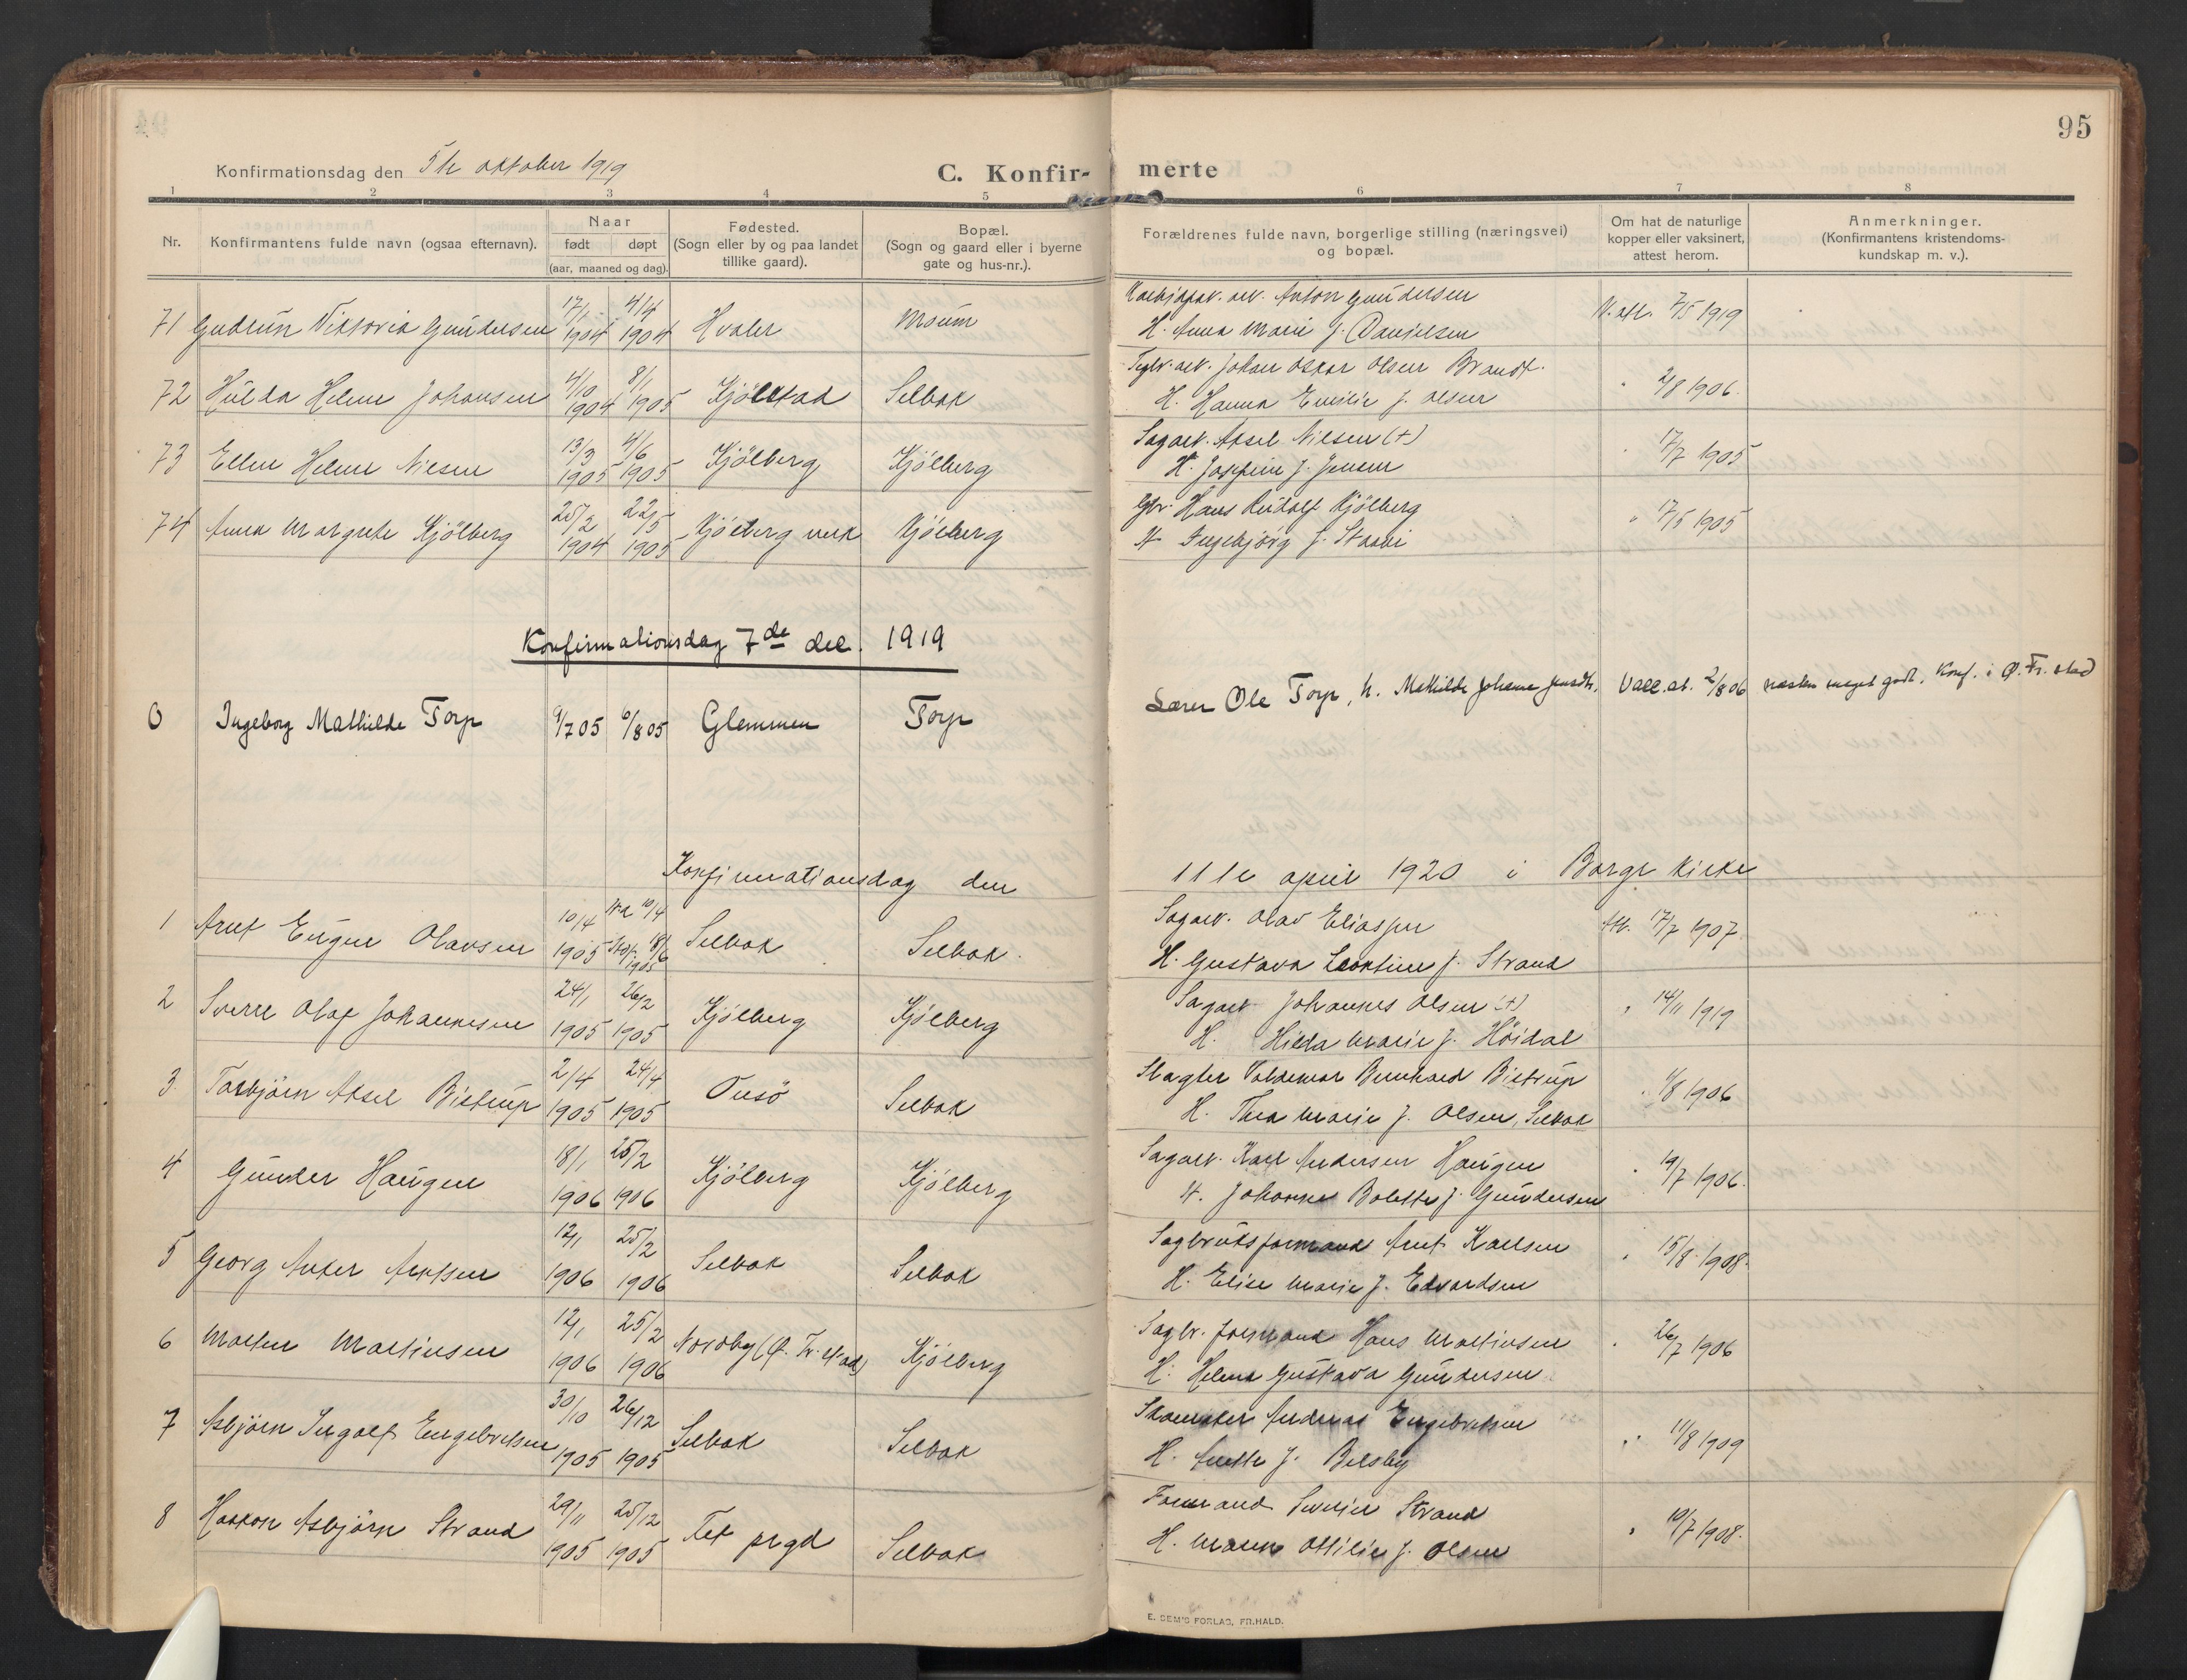 95
Konfirmationsdag den 5te oktober 1919
C. Konfir- merte
1 2 3 4 5 6 7 8
Nr.
Konfirmantens fulde navn (ogsaa efternavn).
Naar
født døpt
(aar, maaned og dag).
Fødested.
(Sogn eller by og paa landet
tillike gaard).
Bopæl.
(Sogn og gaard eller i byerne
gate og hus-nr.).
Forældrenes fulde navn, borgerlige stilling (næringsvei)
og bopæl.
Om hat de naturlige
kopper eller vaksinert,
attest herom.
Anmerkninger.
(Konfirmantens kristendoms-
kundskap m. v.).
71 Gudrun Viktoria Gundersen 17/1 1904 4/4 1904 Hvaler Moum
Anton Gundersen
H. Anna Marie f. Danielsen
V. att. 7/5 1919
72 Hulda Helene Johansen 4/10 1904 8/1 1905 Kjölstad Selbak
Teglv. arb. Johan Oskar Olsen Brandt.
H. Hanna Emilie f. Olsen
" 2/8 1906.
73 Ellen Helene Nilsen 13/3 1905 4/6 1905 Kjölberg Kjölberg
Sagarb. Aksel Nilsen (+)
H. Josefine f. Jensen
" 17/7 1905
74 Anna Margrete Kjölberg 25/2 1904 22/5 1905 Kjölberg Kjölberg
Gbr. Hans Rudolf Kjölberg
H. Ingebjörg f. Staabi
" 17/5 1905
Konfirmationsdag 7de dec. 1919
0 Ingeborg Mathilde Torp 9/7 05 6/8 05 Glemmen Torp
Lærer Ole Torp, h. Mathilde Johanne
Vacc. at. 2/8 06
næsten meget godt. Konf. i Ø. Fr.stad
Konfirmationsdag den 11te april 1920 i Borge kirke
1 Arnt Eugen Olavsen 10/4 1905 10/4 18/6 1905 Selbak Selbak.
Sagarb. Olav Eliassen
H. Gustava Leontine f. Strand
Att. 17/7 1907
2 Sverre Olaf Johannesen 24/1 1905 26/2 1905 Kjölberg Kjölberg
Sagarb. Johannes Olsen (+)
H. Hilda Marie f. Höidal
" 14/11 1919
3 Torbjörn Aksel Bistrup 2/4 1905 24/4 1905 Onsö Selbak
Slagter Valdemar Bernhard Bistrup
H. Thea Marie f. Olsen, Selbak
" 1/8 1906
4 Gunder Haugen 18/1 1906 25/2 1906 Kjölberg Kjölberg
Sagarb. Karl Andersen Haugen
H. Johanne Bolette f. Gundersen
" 19/7 1906.
5 Georg Anker Arntsen 12/1 1906 25/2 1906 Selbak Selbak
Sagbruksformand Arnt Karlsen
H. Elise Marie f. Edvardsen
" 15/8 1908.
6 Morten Martinsen 12/1 1906 25/2 1906 Nordby (Ø. Fr.stad) Kjölberg
Sagbr. formand Hans Martinsen
H. Helena Gustava Gundersen
" 26/7 1906
7 Asbjörn Ingolf Engebretsen 30/10 1905 26/12 1905 Selbak Selbak
Skomaker Andreas Engebretsen
H. Anette f. Belsby
" 11/8 1909
8 Haakon Asbjörn Strand 29/11 1905 25/12 1905 Tet prgd Selbak
Formand Severin Strand
H. Maren Ottilie f. Olsen
" 10/7 1908.
E. SEM'S FORLAG, FR.HALD.